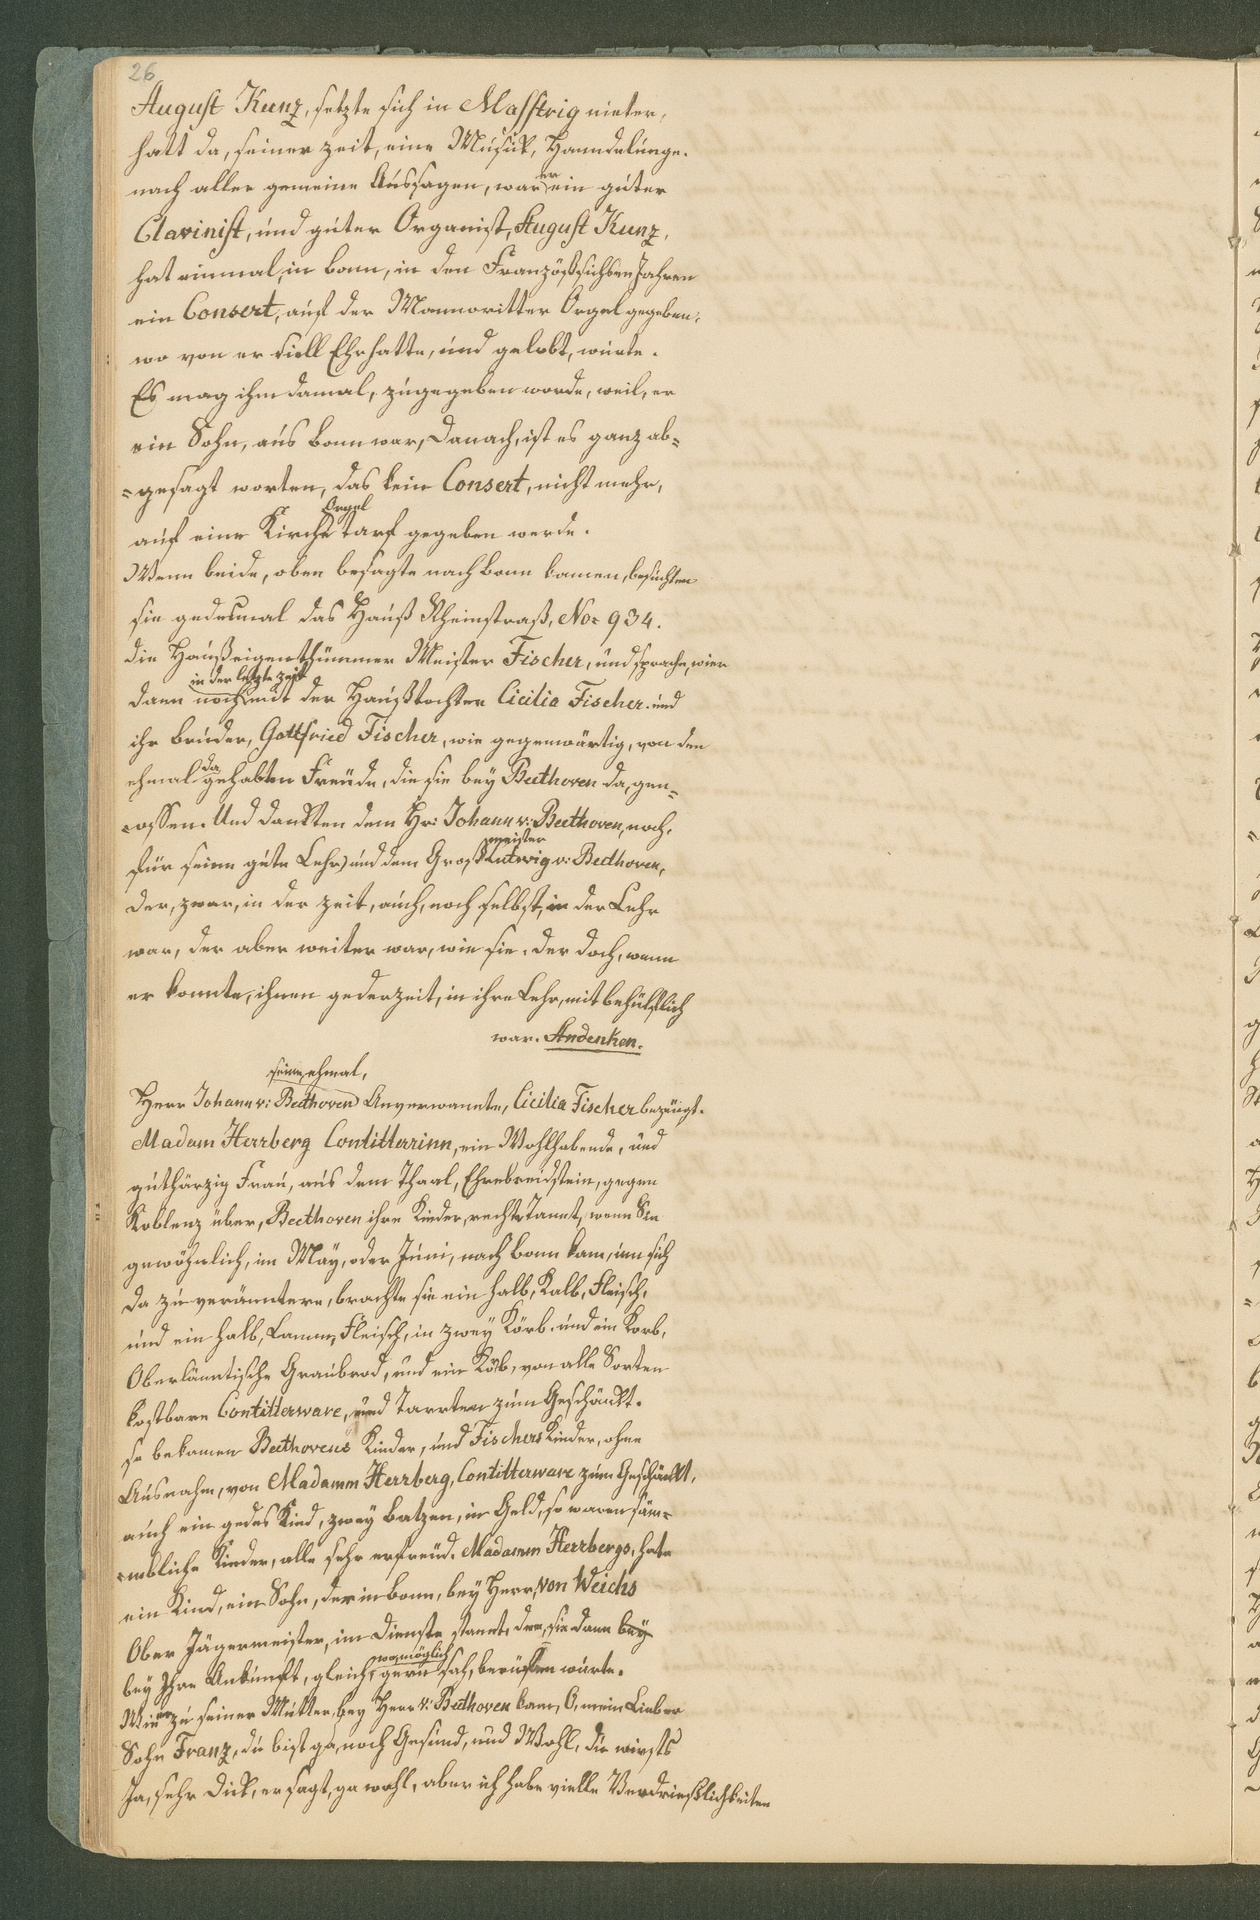 26
August Kunz, setzte sich in Masstrig nieter,
hatt da, seiner zeit, eine Musick, Hanndelunge.
nach aller gemeine Aussagen, war er ein guter
Clavinist, und guter Organist, August Kunz,
hat einmal, in bonn, in den Französsichen Jahren
ein Consert, auf der Mannoritter Orgel gegeben,
wo von er viell Ehr hatte, und gelobt, wurte.
Es mag ihm damal, zugegeben worde, weil, er
ein Sohn, aus bonn war, Danach, ist es ganz ab=
=gesagt worten, das kein Consert, nicht mehr,
auf eine Kirche Orgel tarf gegeben werde.
Wenn beide, oben besagte nach bonn kamen, besuchten
sie gedesmal das Hauß Rheinstraß, No= 934.
die Haußeigenthümmer Meister Fischer, und sprache, wier
dann noch in der letzte zeit mit der Haußtochter Cicilia Fischer. und
ihr bruder, Gottfried Fischer, wie gegenwärtig, von den
ehmal da gehabten Freude, die sie bey Beethoven da, gen=
=ossen. Und dankten dem Hr: Johann v: Beethoven, noch,
für seine gute Lehr, und dem Großmeister Lutwig v: Bedhoven,
der, zwar, in der zeit, auch, noch selbst, in der Lehr
war, der aber weiter war, wie sie. der doch, wenn
er konnte, ihnen gederzeit, in ihre Lehr, mit behülflich
war. Andenken.
seine, ehmal,
Herr Johann v: Bedhoven Anverwannte, Cicilia Fischer bezeugt.
Madam Herrberg Contitterrinn, ein Wohlhabende, und
guthärzig Frau, aus dem Thaal, Ehrebreidstein, gegen
Koblenz über, Beethoven ihre Kinder, rechte Tannt, wenn Sie
gewöhnlich, im May, oder Juni, nach bonn kam, um sich
da zu veränntere, brachte sie ein halb, Kalb, Fleisch,
und ein halb, Lamm, Fleisch, in zwey Körb. und ein Korb,
Oberlänntische Graubrod, und ein Korb, von alle Sorten
kostbare Contitterware, und Tarrten zum Geschänkt.
so bekamen Beethovens Kinder, und Fischers Kinder, ohne
Ausnahm, von Madamm Herrberg, Contitterware zum Geschänkt,
auch ein gedes Kind, zwey batzen, in Geld, so waren säm=
=mbliche Kinder, alle sehr erfreud. Madamm Herrbergs, hate
ein Kind, ein Sohn, der in bonn, bey Herr, von Weichs
Ober Jägermeister, im dienste stannt, den, sie dann bey
bey Ihre Ankunft, gleich, womöglich gern sah, berufen wurte.
Wie er zu seiner Mutter, bey Herr v: Bedhoven kam, O, mein Lieber
Sohn Franz, du bist ga, noch Gesund, und Wohl, du wirsts
Ja, sehr dick, er sagt, ga wohl, aber ich habe vielle Verdrießlichkeiten